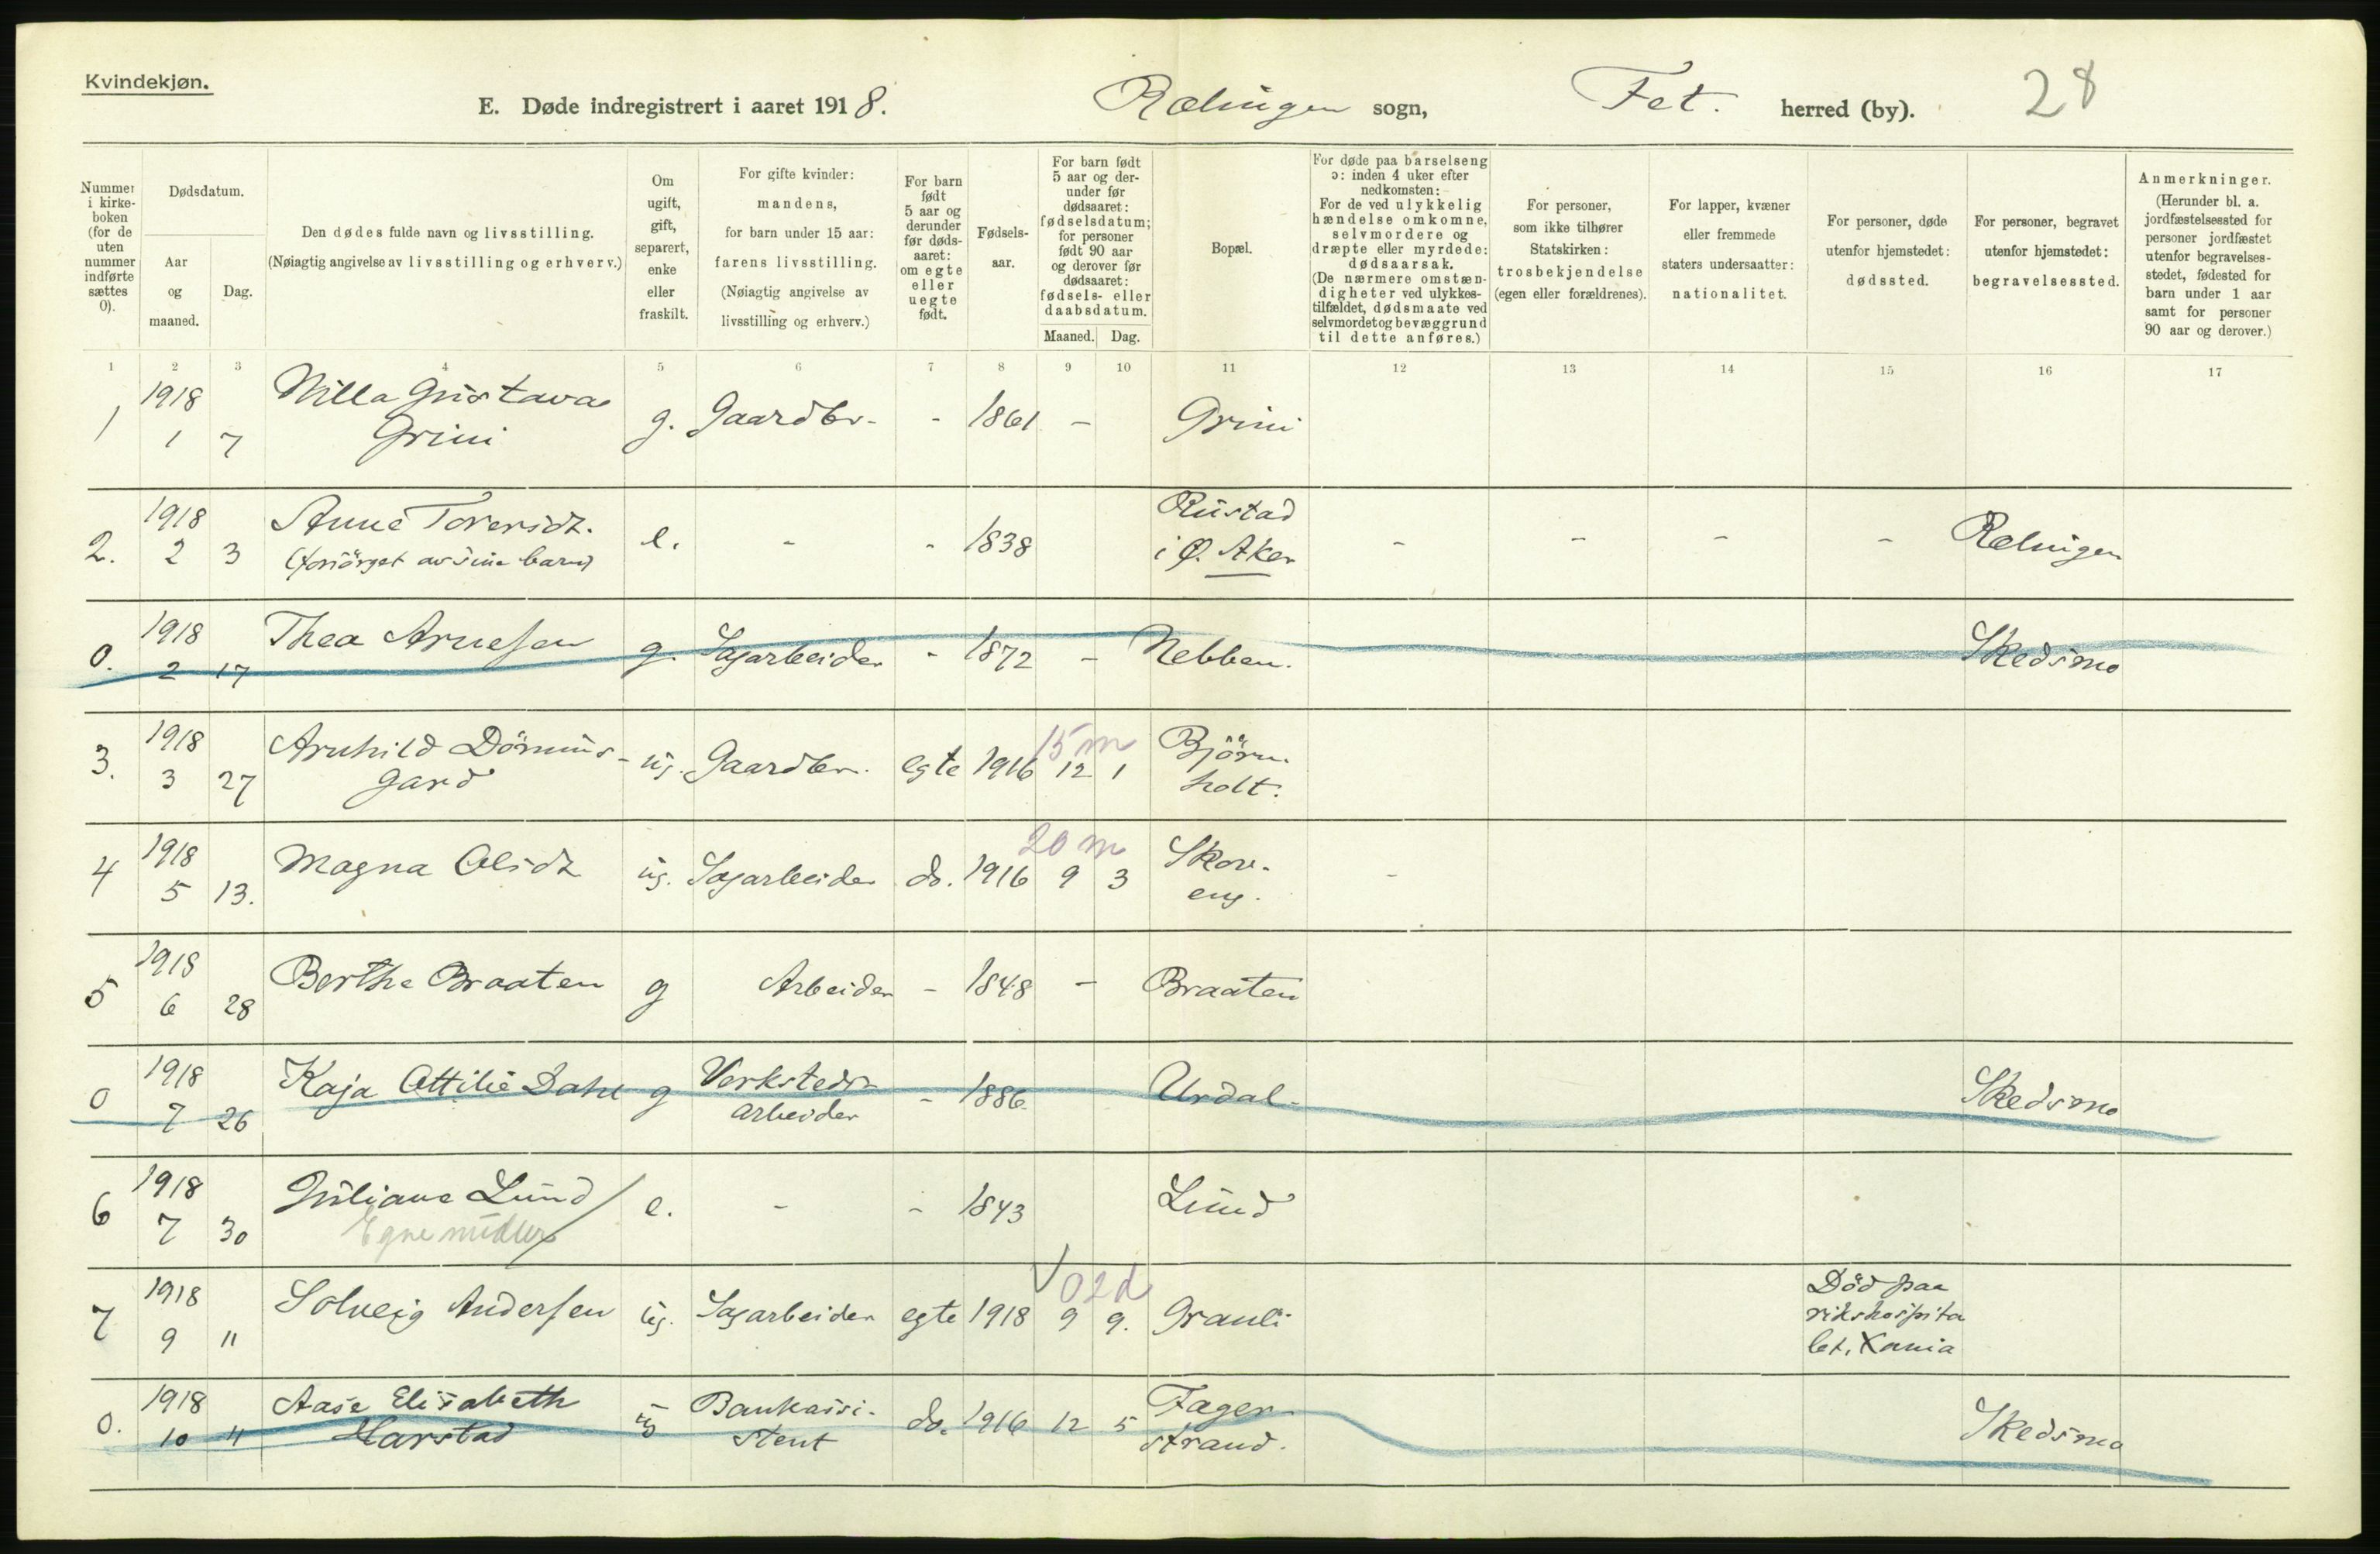 Kvindekjøn.
E. Døde indregistrert i aaret 1918. Rælingen sogn, Fet. herred (by). 28
Nummer i kirke-boken (for de uten nummer indførte sættes 0).
Dødsdatum.
Aar og maaned.
Dag.
Den dødes fulde navn og livsstilling.
(Nøiagtig angivelse av livsstilling og erhverv.)
Om ugift, gift, separert, enke eller fraskilt.
For gifte kvinder: mandens, for barn under 15 aar: farens livsstilling. (Nøiagtig angivelse av livsstilling og erhverv.)
For barn født 5 aar og derunder før døds-aaret: om egte eller uegte født.
Fødsels-aar.
For barn født 5 aar og der-under før dødsaaret: fødselsdatum; for personer født 90 aar og derover før dødsaaret: fødsels- eller daabsdatum.
Maaned. Dag.
Bopæl.
For døde paa barselseng ɔ: inden 4 uker efter nedkomsten: For de ved ulykkelig hændelse omkomne, selvmordere og dræpte eller myrdede: dødsaarsak. (De nærmere omstæn-digheter ved ulykkes-tilfældet, dødsmaate ved selvmordet og bevæggrund til dette anføres.)
For personer, som ikke tilhører Statskirken: trosbekjendelse (egen eller forældrenes).
For lapper, kvæner eller fremmede staters undersaatter: nationalitet.
For personer, døde utenfor hjemstedet: dødssted.
For personer, begravet utenfor hjemstedet: begravelsessted.
Anmerkninger. (Herunder bl. a. jordfæstelsessted for personer jordfæstet utenfor begravelses-stedet, fødested for barn under 1 aar samt for personer 90 aar og derover.)
1 2 3 4 5 6 7 8 9 10 11 12 13 14 15 16 17
1 1918 1 7 Milla Gustava Grini g. Gaardbr. - 1861 - Grini
2. 1918 2 3 Anne Toresdt. (forsörget av sine barn) e. - - 1838 Rustad i Ø. Aker - - - - Rælingen
0. 1918 2 17 Thea Arnesen g. Sagarbeider - 1872 - Nebben. Skedsmo
3. 1918 3 27 Arnhild Dömmis-gard ug. Gaardbr. egte 1916 12 1 15 m Björn-holt.
4 1918 5 13. Magna Olsdt ug. Sagarbeider do. 1916 9 3 20 m Skov-eng. -
5 1918 6 28 Berthe Braaten g Arbeider - 1848 - Braaten
0 1918 7 26 Kaja Ottilie Dahl g Verksteds-arbeider - 1886 Urdal Skedsmo
6 1918 7 30 Juliane Lund / Egne midler e. - - 1843 Lund
7 1918 9 11 Solveig Andersen ug. Sagarbeider egte 1918 9 9. 02d Granli Död paa rikshospita let, Xania
0. 1918 10 4 Aase Elisabeth Harstad ug Bankassi-stent do. 1916 12 5 Fager-strand. Skedsmo